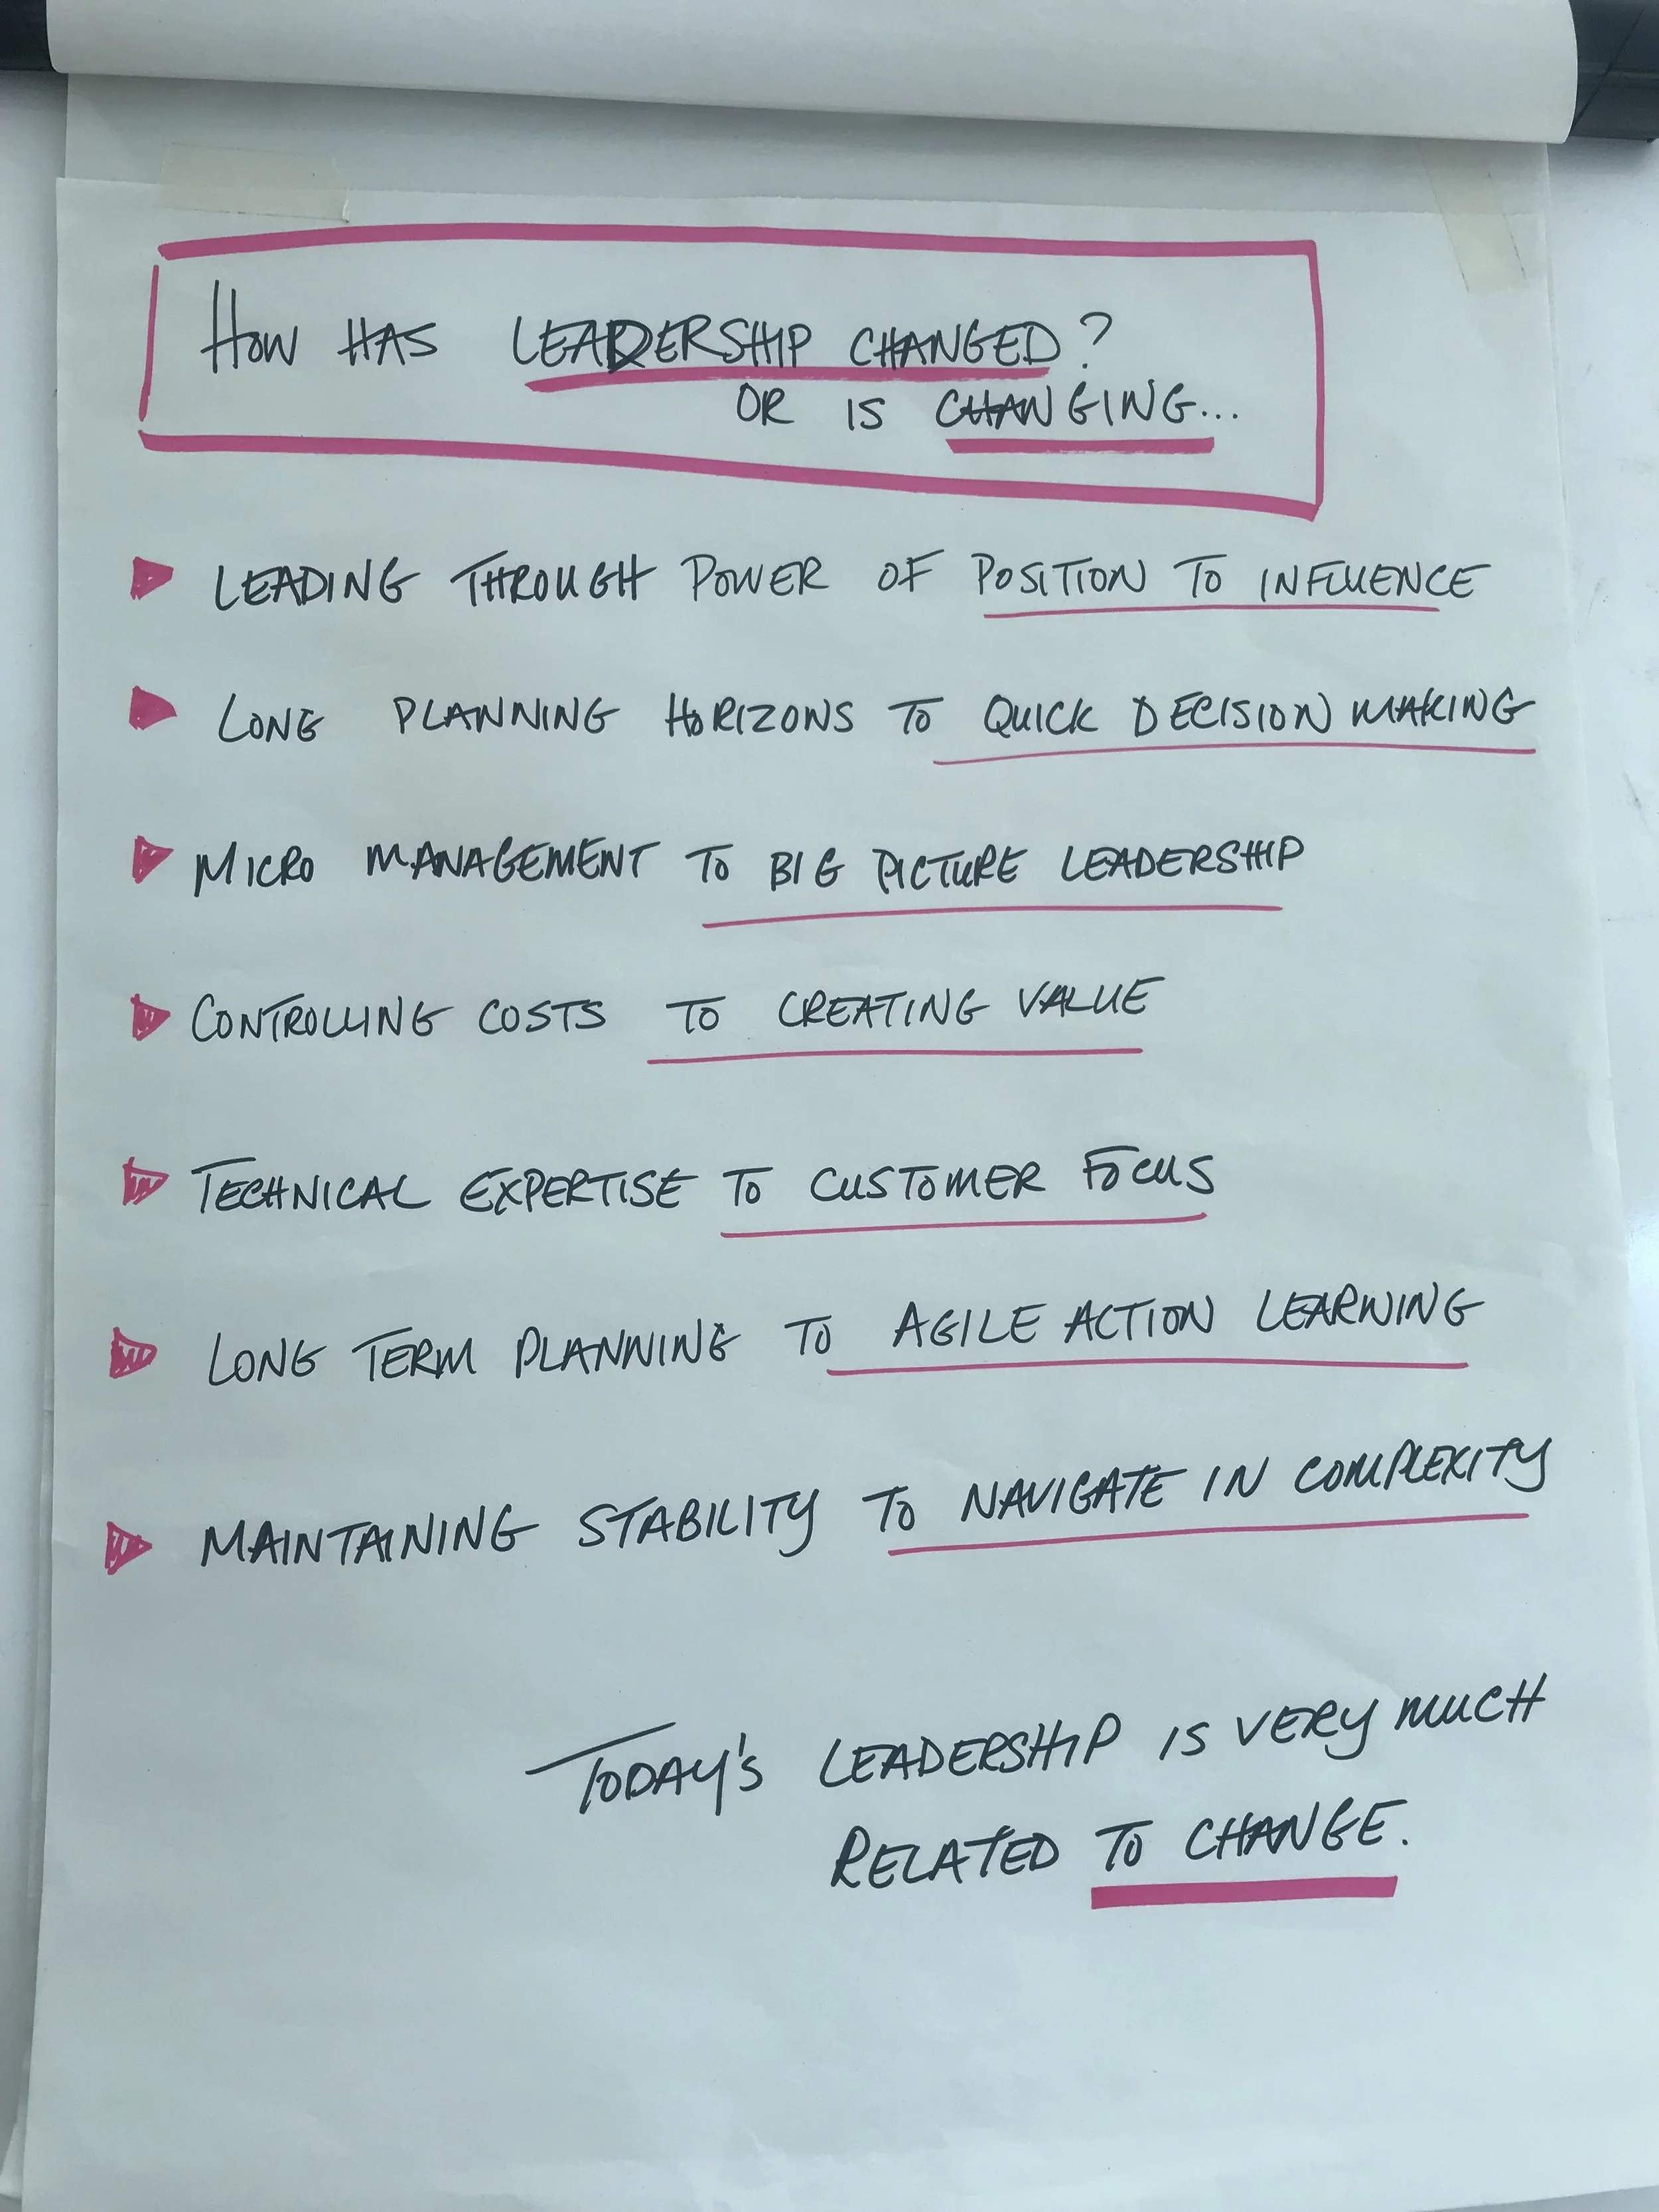 HOW HAS LEADERSHIP CHANGED?
OR IS CHANGING...
LEADING THROUGH POWER OF POSITION TO INFLUENCE
LONG PLANNING HORIZONS TO QUICK DECISION MAKING
MICRO MANAGEMENT TO BIG PICTURE LEADERSHIP
CONTROLLING COSTS TO CREATING VALUE
TECHNICAL EXPERTISE TO CUSTOMER FOCUS
LONG TERM PLANNING TO AGILE ACTION LEARNING
MAINTAINING STABILITY TO NAVIGATE IN COMPLEXITY
TODAY'S LEADERSHIP IS VERY MUCH
RELATED TO CHANGE.